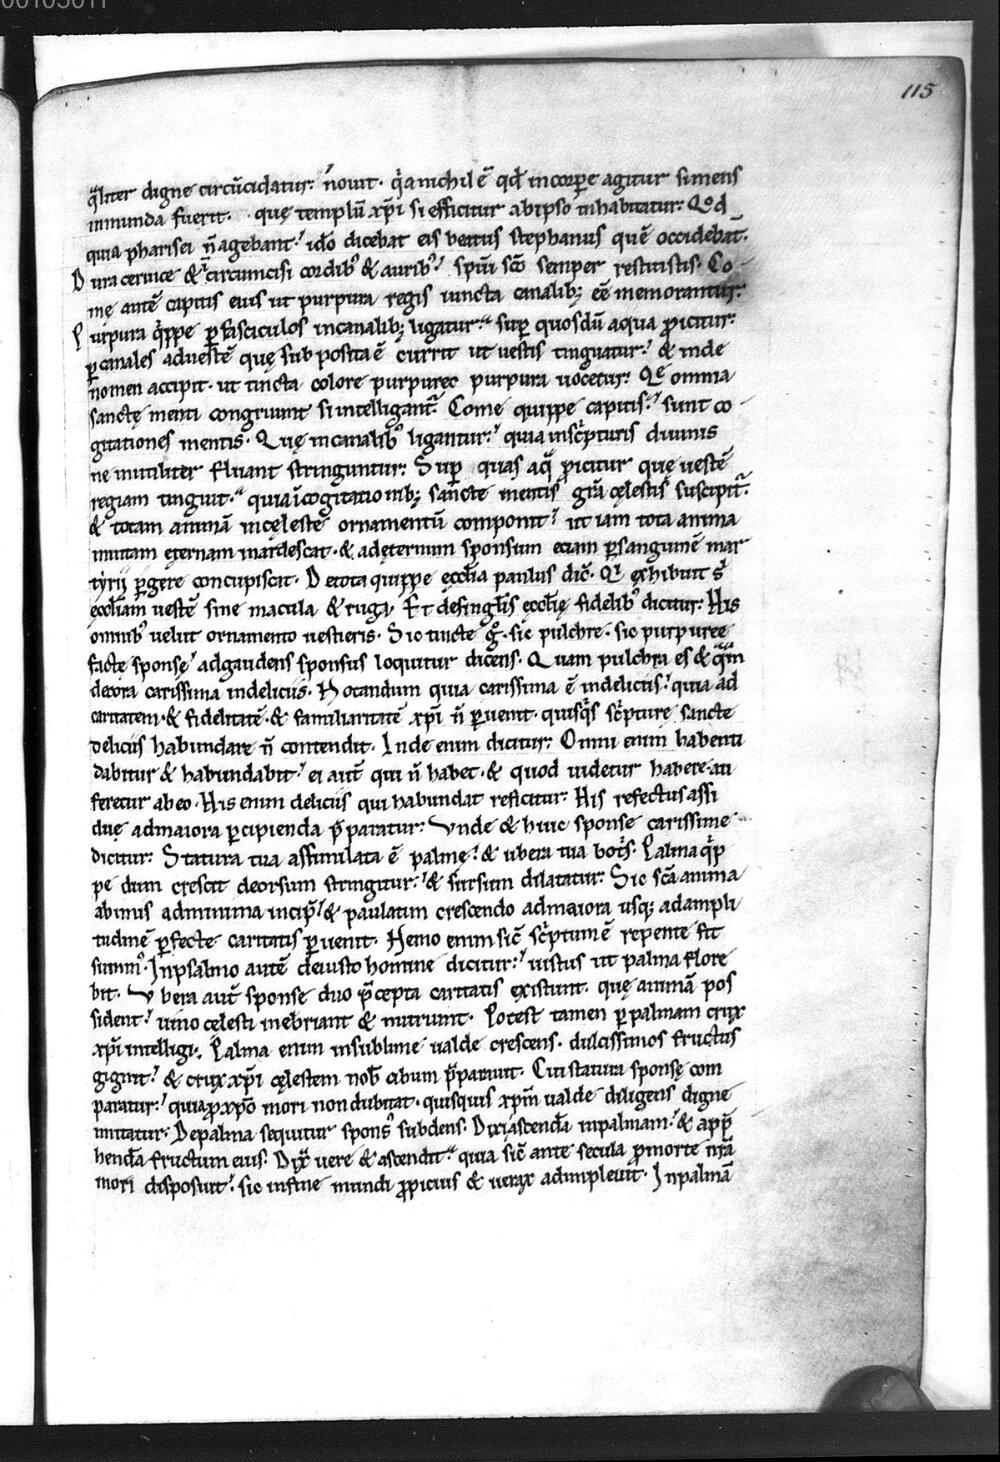 115
q̃liter digne circũcidatur. ñ ouit. q̃a nichil ẽ qđ in corpore agitur si mens
inmunda fuerit. que templũ xp̃i si efficitur ab ipso inhabitatur. Qđ
quia pharisei ñ agebant. iđo dicebat eis beatus stephanus quẽ occidebat.
Dura ceruice & circumcisi cordib' & aurib'. spũi sc̃o semper restitistis. Co
mę autẽ capitis eius ut purpura regis iuncta canalib; eẽ memorantur.
Purpura q̃ppe p fasciculos in canalib; ligatur. sup quos dũ aqua p̃icitur.
p canales ad uestẽ quę sub posita ẽ currit ut uestis tinguatur. & inde
nomen accipit. ut tincta colore purpureo purpura uocetur. Qẽ omnia
sanctę menti congruunt si intelligant̃. Come quippe capitis. sunt co
gitationes mentis. Quę in canalib' ligantur. quia in sc̃pturis diuinis
ne inutiliter fluant stringuntur. Sup quas aq̃ p̃icitur que uestẽ
regiam tinguit. quia ĩ cogitationib; sanctę mentis gr̃a cęlestis suscipit̃.
& totam animã in cęleste ornamentũ componit. ut iam tota anima
in uitam ęternam inardescat. & ad ęternum sponsum eciam p sanguinẽ mar
tyrij pgere concupiscat. De tota quippe ęccl̃ia paulus dic̃. Qr̃ exhibuit s̃
ęccl̃iam uestẽ sine macula & ruga. Et de singl̃is ęccl̃ię fidelib' dicitur. His
omnib' uelut ornamento uestieris. Sic tincte g̊. sic pulchre. sic purpuree
factę sponsę adgaudens sponsus loquitur dicens. Quam pulchra es & q̃m
decora carissima in deliciis. Notandum quia carissima ẽ in deliciis. quia ad
caritatem. & fidelitatẽ. & familiaritatẽ xp̃i ñ puenit. quisq̃s sc̃pturę sancte
deliciis habundare ñ contendit. Inde enim dicitur. Omni enim habenti
dabitur & habundabit. ei aut̃ qui ñ habet. & quod uidetur habere au
feretur ab eo. His enim deliciis qui habundat reficitur. His refectus assi
duę ad maiora pcipienda p̃paratur. Unde & huic sponse carissime
dicitur. Statura tua assimilata ẽ palmę. & ubera tua botr̃s. Palma q̃p
pe dum crescit deorsum stringitur. & sursum dilatatur. Sic sc̃a anima
ab imis ad minima incip̃. & paulatim crescendo ad maiora usq; ad ampli
tudinẽ pfecte caritatis puenit. Nemo enim sic̃ sc̃ptum ẽ repente fit
summ'. In psalmo autẽ de iusto homine dicitur. iustus ut palma flore
bit. Ubera aut̃ sponse duo p̃cepta caritatis existunt. quę animã pos
sident. uino cęlesti inebriant & nutriunt. Potest tamen p palmam crux
xp̃i intelligi. Palma enim in sublime ualde crescens. dulcissimos fructus
gignit. & crux xp̃i cęlestem nob̃ cibum p̃parauit. Cui statura sponsę com
paratur. quia p xp̃o mori non dubitat. quisquis xp̃m ualde diligens digne
imitatur. De palma sequitur spons' subdens. Dixi ascendã in palmam. & app̃
hendã fructum eius. Dix̃ uere & ascendit. quia sic̃ ante secula p morte nr̃a
mori disposuit. sic in fine mundi p̃picius & uerax adimpleuit. In palmã